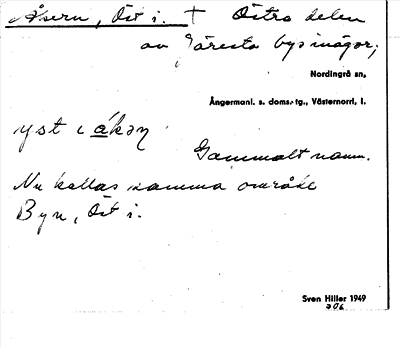 Åsern, Öst i. † Östra delen
av Järesta bys inägor;
Nordingrå sn,
Ångermanl. s. doms.-tg., Västernorrl, l.
yst i åkəṇ
Gammalt namn.
Nu kallas samma område
Byn, Öst i.
Sven Hiller 1949
206